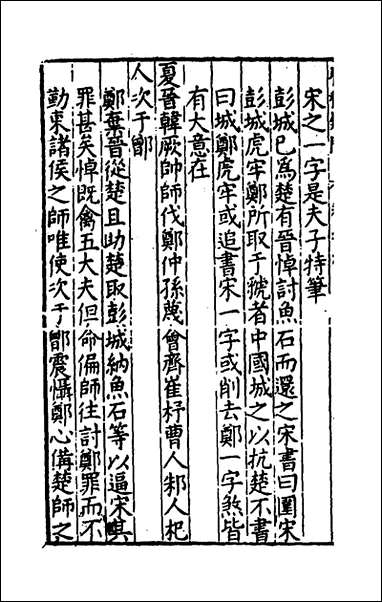 宋之一字是夫子特筆
彭城已為楚有晉悼討魚石而還之宋書曰圍宋
彭城虎牢鄭所取于虢者中國城之以抗楚不書
曰城鄭虎牢或追書宋一字或削去鄭一字煞皆
有大意在
夏晉韓厥帥師伐鄭仲孫蔑會齊崔杼曹人邾人杞
人次于鄫
鄭棄晉從楚且助楚取彭城納魚石等以逼宋其
罪甚矣悼既禽五大夫但命偏師往討鄭罪而不
勤東諸侯之師唯使次于鄫震懾鄭心備楚師之